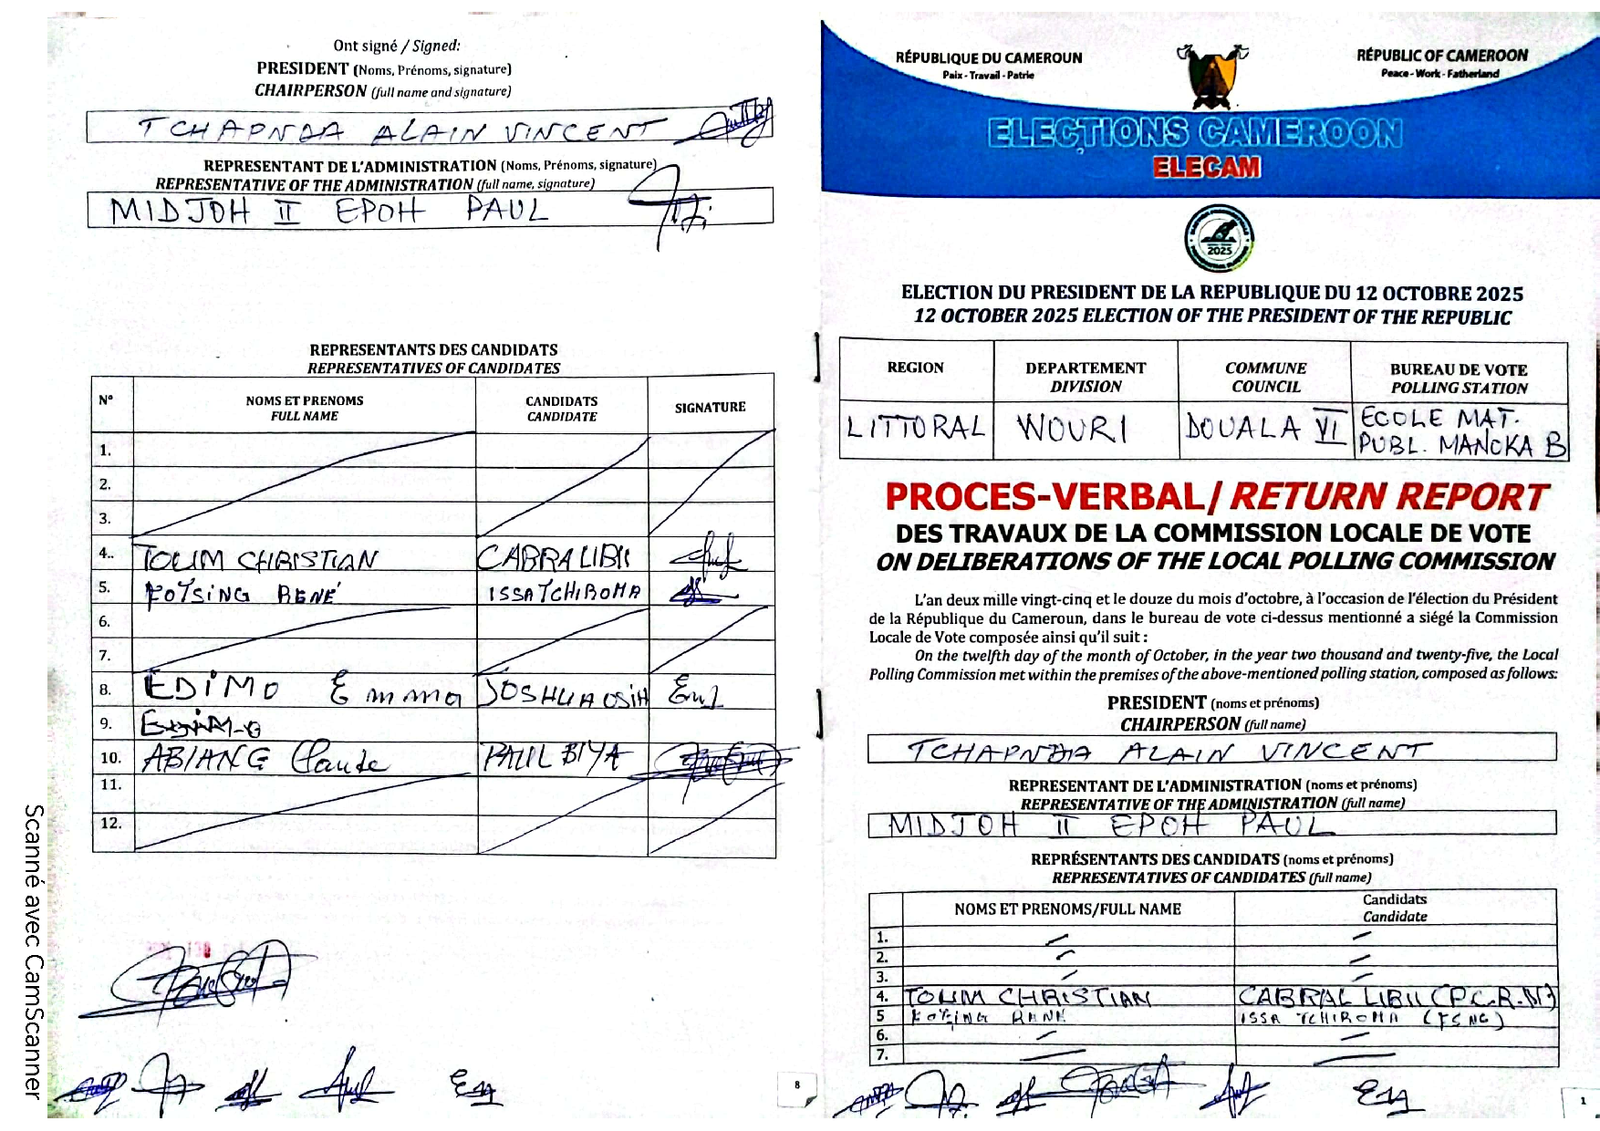 Ont signé / Signed:
PRESIDENT (Noms, Prénoms, signature)
CHAIRPERSON (full name and signature)
TCHAPNDA ALAIN VINCENT
REPRESENTANT DE L'ADMINISTRATION (Noms, Prénoms, signature)
REPRESENTATIVE OF THE ADMINISTRATION (full name, signature)
MIDJOH II EPOH PAUL
REPRESENTANTS DES CANDIDATS
REPRESENTATIVES OF CANDIDATES
N° NOMS ET PRENOMS CANDIDATS SIGNATURE
FULL NAME CANDIDATE
1.
2.
3.
4.. TOUM CHRISTIAN CABRAL LIBII
5. FOTSING RENÉ ISSA TCHIROMA
6.
7.
8. EDIMO Emma JOSHUA OSIH
9.
10. ABIANG Claude PAUL BIYA
11.
12.
8
Scanné avec CamScanner
RÉPUBLIQUE DU CAMEROUN
Paix - Travail - Patrie
RÉPUBLIC OF CAMEROON
Peace - Work - Fatherland
ELECTIONS CAMEROON
ELECAM
2025
ELECTION DU PRESIDENT DE LA REPUBLIQUE DU 12 OCTOBRE 2025
12 OCTOBER 2025 ELECTION OF THE PRESIDENT OF THE REPUBLIC
REGION DEPARTEMENT COMMUNE BUREAU DE VOTE
DIVISION COUNCIL POLLING STATION
LITTORAL WOURI DOUALA VI ECOLE MAT.
PUBL. MANOKA B
PROCES-VERBAL/ RETURN REPORT
DES TRAVAUX DE LA COMMISSION LOCALE DE VOTE
ON DELIBERATIONS OF THE LOCAL POLLING COMMISSION
L'an deux mille vingt-cinq et le douze du mois d'octobre, à l'occasion de l'élection du Président
de la République du Cameroun, dans le bureau de vote ci-dessus mentionné a siégé la Commission
Locale de Vote composée ainsi qu'il suit :
On the twelfth day of the month of October, in the year two thousand and twenty-five, the Local
Polling Commission met within the premises of the above-mentioned polling station, composed as follows:
PRESIDENT (noms et prénoms)
CHAIRPERSON (full name)
TCHAPNDA ALAIN VINCENT
REPRESENTANT DE L'ADMINISTRATION (noms et prénoms)
REPRESENTATIVE OF THE ADMINISTRATION (full name)
MIDJOH II EPOH PAUL
REPRÉSENTANTS DES CANDIDATS (noms et prénoms)
REPRESENTATIVES OF CANDIDATES (full name)
NOMS ET PRENOMS/FULL NAME Candidats
Candidate
1.
2.
3.
4. TOUM CHRISTIAN CABRAL LIBII (P.C.R.N)
5 FOTSING RENE ISSA TCHIROMA (FSNC)
6.
7.
1